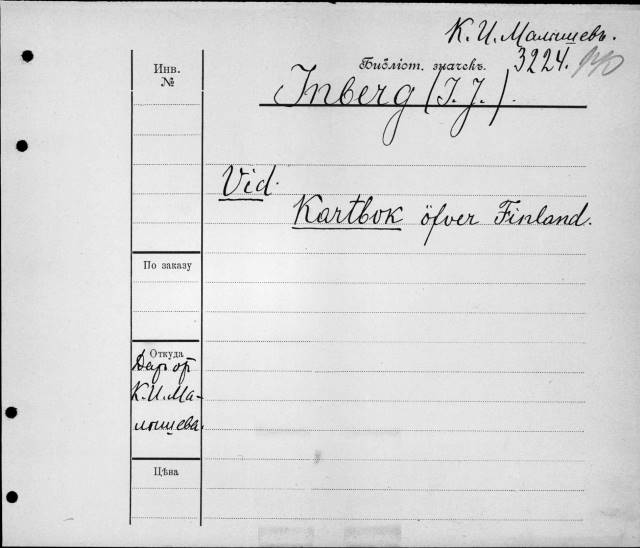 К. И. Малышевъ.
Библіот. значекъ. 3224. 940
Инв.
№
Inberg (I. J.).
Vid.
Kartbok öfver Finland.
По заказу
Откуда
Дар от
К. И. Ма-
лышева.
Цѣна